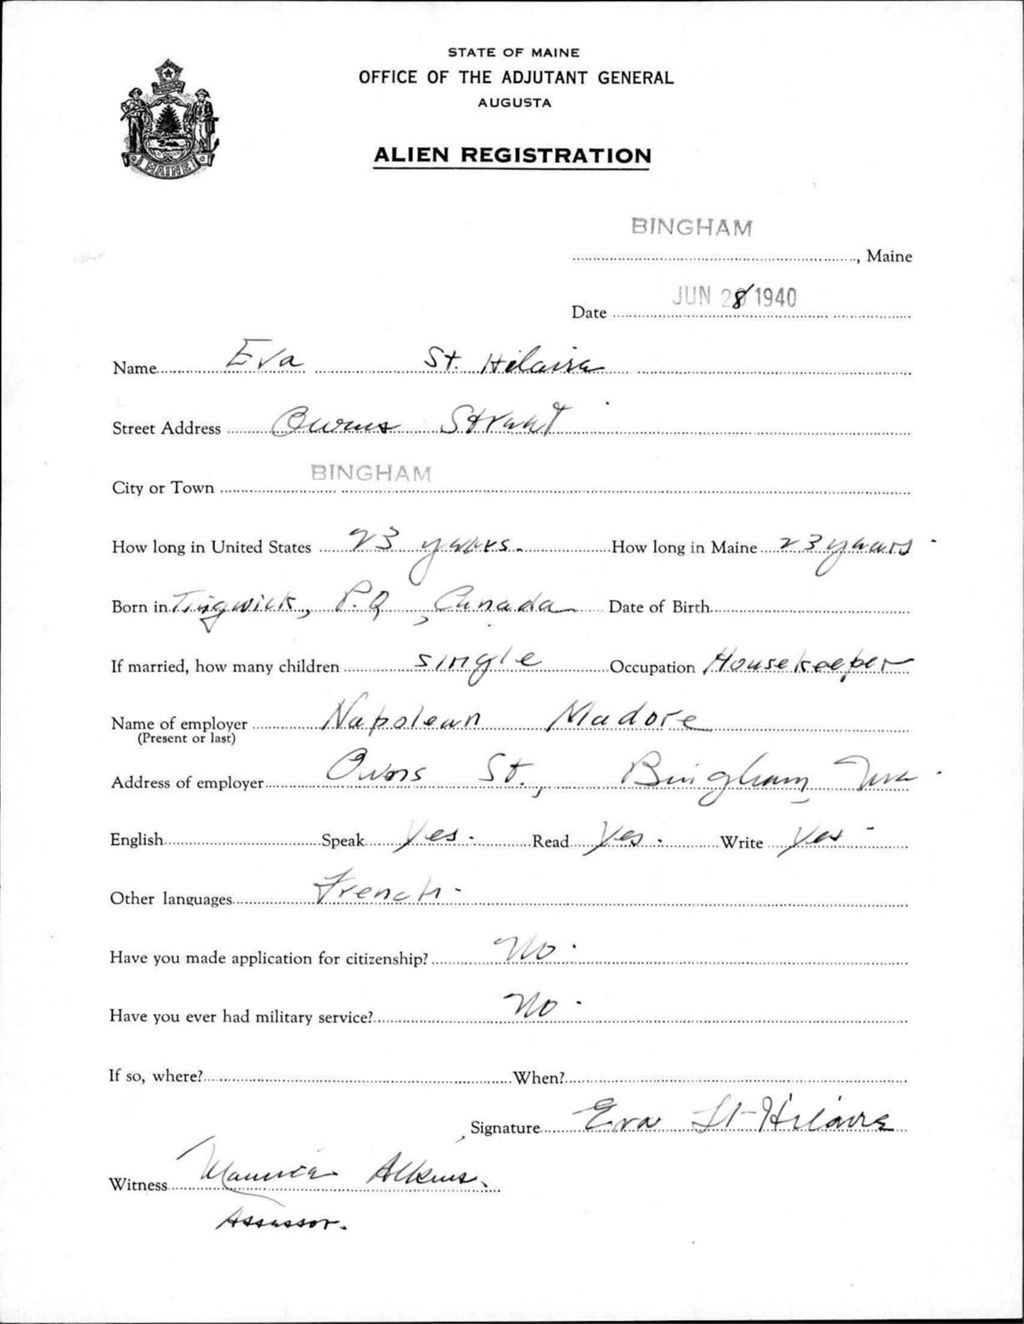 STATE OF MAINE
OFFICE OF THE ADJUTANT GENERAL
AUGUSTA
ALIEN REGISTRATION
MAINE
BINGHAM
, Maine
Date JUN 28 1940
Name Eva St. Hilaire
Street Address Owens Street
City or Town BINGHAM
How long in United States 23 years. How long in Maine 23 years.
Born in Tingwick, P.Q, Canada Date of Birth
If married, how many children single Occupation Housekeeper
Name of employer Napolean Madore
(Present or last)
Address of employer Owens St., Bingham, Me.
English Speak Yes. Read Yes. Write Yes
Other languages French
Have you made application for citizenship? No.
Have you ever had military service? No.
If so, where? When?
Signature Eva St-Hilaire
Witness Maurice Adkins.
Assessor.